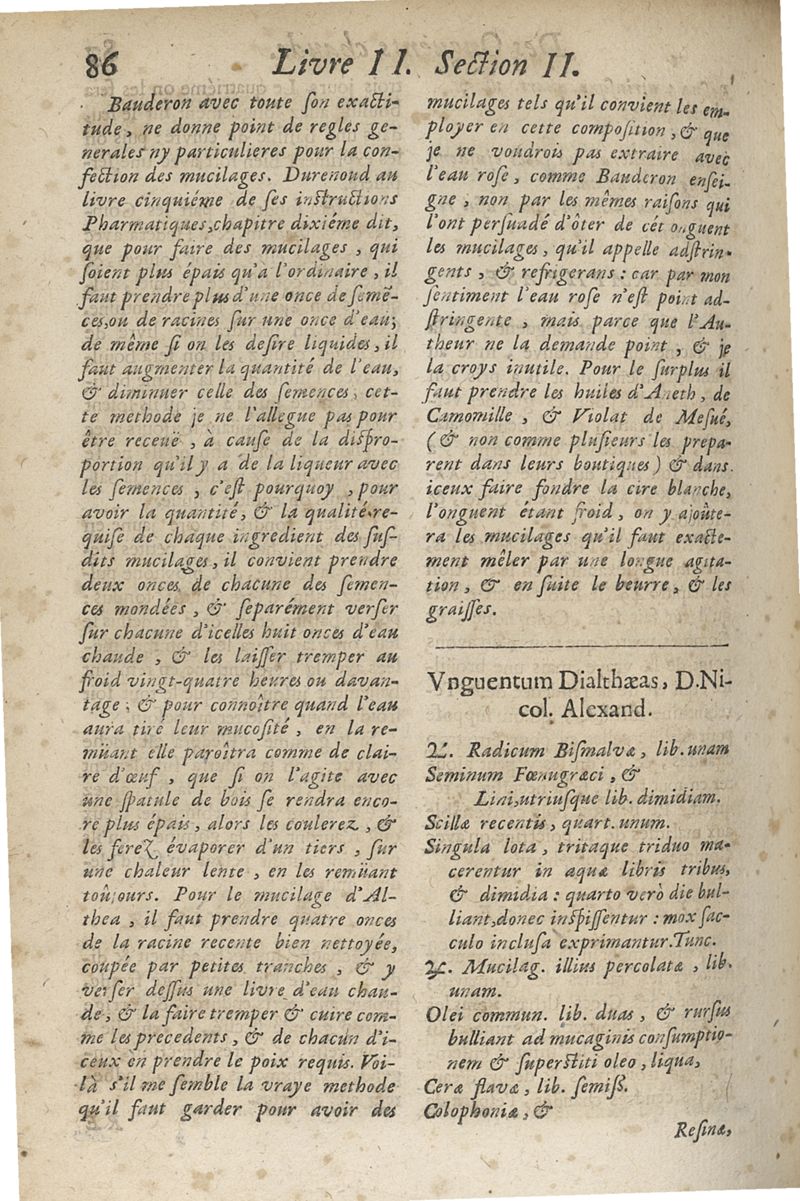 86 Livre II. Section II.
Bauderon avec toute ſon exacti-
tude, ne donne point de regles ge-
nerales ny particulieres pour la con-
fection des mucilages. Durenoud au
livre cinquiéme de ſes inſtructions
Pharmatiques,chapitre dixiéme dit,
que pour faire des mucilages, qui
ſoient plus épais qu'a l'ordinaire, il
faut prendre plus d'une once de ſemẽ-
ces,ou de racines ſur une once d'eau;
de même ſi on les deſire liquides, il
faut augmenter la quantité de l'eau,
& diminuer celle des ſemences, cet-
te methode je ne l'allegue pas pour
être receuë, à cauſe de la diſpro-
portion qu'il y a de la liqueur avec
les ſemences, c'eſt pourquoy, pour
avoir la quantité, & la qualité re-
quiſe de chaque ingredient des ſuſ-
dits mucilages, il convient prendre
deux onces de chacune des ſemen-
ces mondées, & ſeparément verſer
ſur chacune d'icelles huit onces d'eau
chaude, & les laiſſer tremper au
froid vingt-quatre heures ou davan-
tage; & pour connoître quand l'eau
aura tiré leur mucoſité, en la re-
müant elle paroîtra comme de clai-
re d'œuf, que ſi on l'agite avec
une ſpatule de bois ſe rendra enco-
re plus épais, alors les coulerez, &
les ferez évaporer d'un tiers, ſur
une chaleur lente, en les remüant
toûjours. Pour le mucilage d'Al-
thea, il faut prendre quatre onces
de la racine recente bien nettoyée,
coupée par petites tranches, & y
verſer deſſus une livre d'eau chau-
de, & la faire tremper & cuire com-
me les precedents, & de chacun d'i-
ceux en prendre le poix requis. Voi-
là s'il me ſemble la vraye methode
qu'il faut garder pour avoir des
mucilages tels qu'il convient les em-
ployer en cette compoſition, & que
je ne voudrois pas extraire avec
l'eau roſe, comme Bauderon enſei-
gne, non par les mêmes raiſons qui
l'ont perſuadé d'ôter de cét onguent
les mucilages, qu'il appelle adſtrin-
gents, & refrigerans : car par mon
ſentiment l'eau roſe n'eſt point ad-
ſtringente, mais parce que l'Au-
theur ne la demande point, & je
la croys inutile. Pour le ſurplus il
faut prendre les huiles d'Aneth, de
Camomille, & Violat de Meſué,
(& non comme pluſieurs les prepa-
rent dans leurs boutiques) & dans
iceux faire fondre la cire blanche,
l'onguent étant froid, on y ajoûte-
ra les mucilages qu'il faut exacte-
ment mêler par une longue agita-
tion, & en ſuite le beurre, & les
graiſſes.
Vnguentum Dialthæas, D.Ni-
col. Alexand.
℞. Radicum Biſmalvæ, lib. unam
Seminum Fœnugræci, &
Lini,utriuſque lib. dimidiam.
Scillæ recentis, quart. unum.
Singula lota, tritaque triduo ma-
cerentur in aquæ libris tribus,
& dimidia : quarto verò die bul-
liant,donec inſpiſſentur : mox ſac-
culo incluſa exprimantur.Tunc.
℞. Mucilag. illius percolatæ, lib.
unam.
Olei commun. lib. duas, & rurſus
bulliant ad mucaginis conſumptio-
nem & ſuperſtiti oleo, liqua,
Ceræ flavæ, lib. ſemiß.
Colophoniæ, &
Reſinæ,